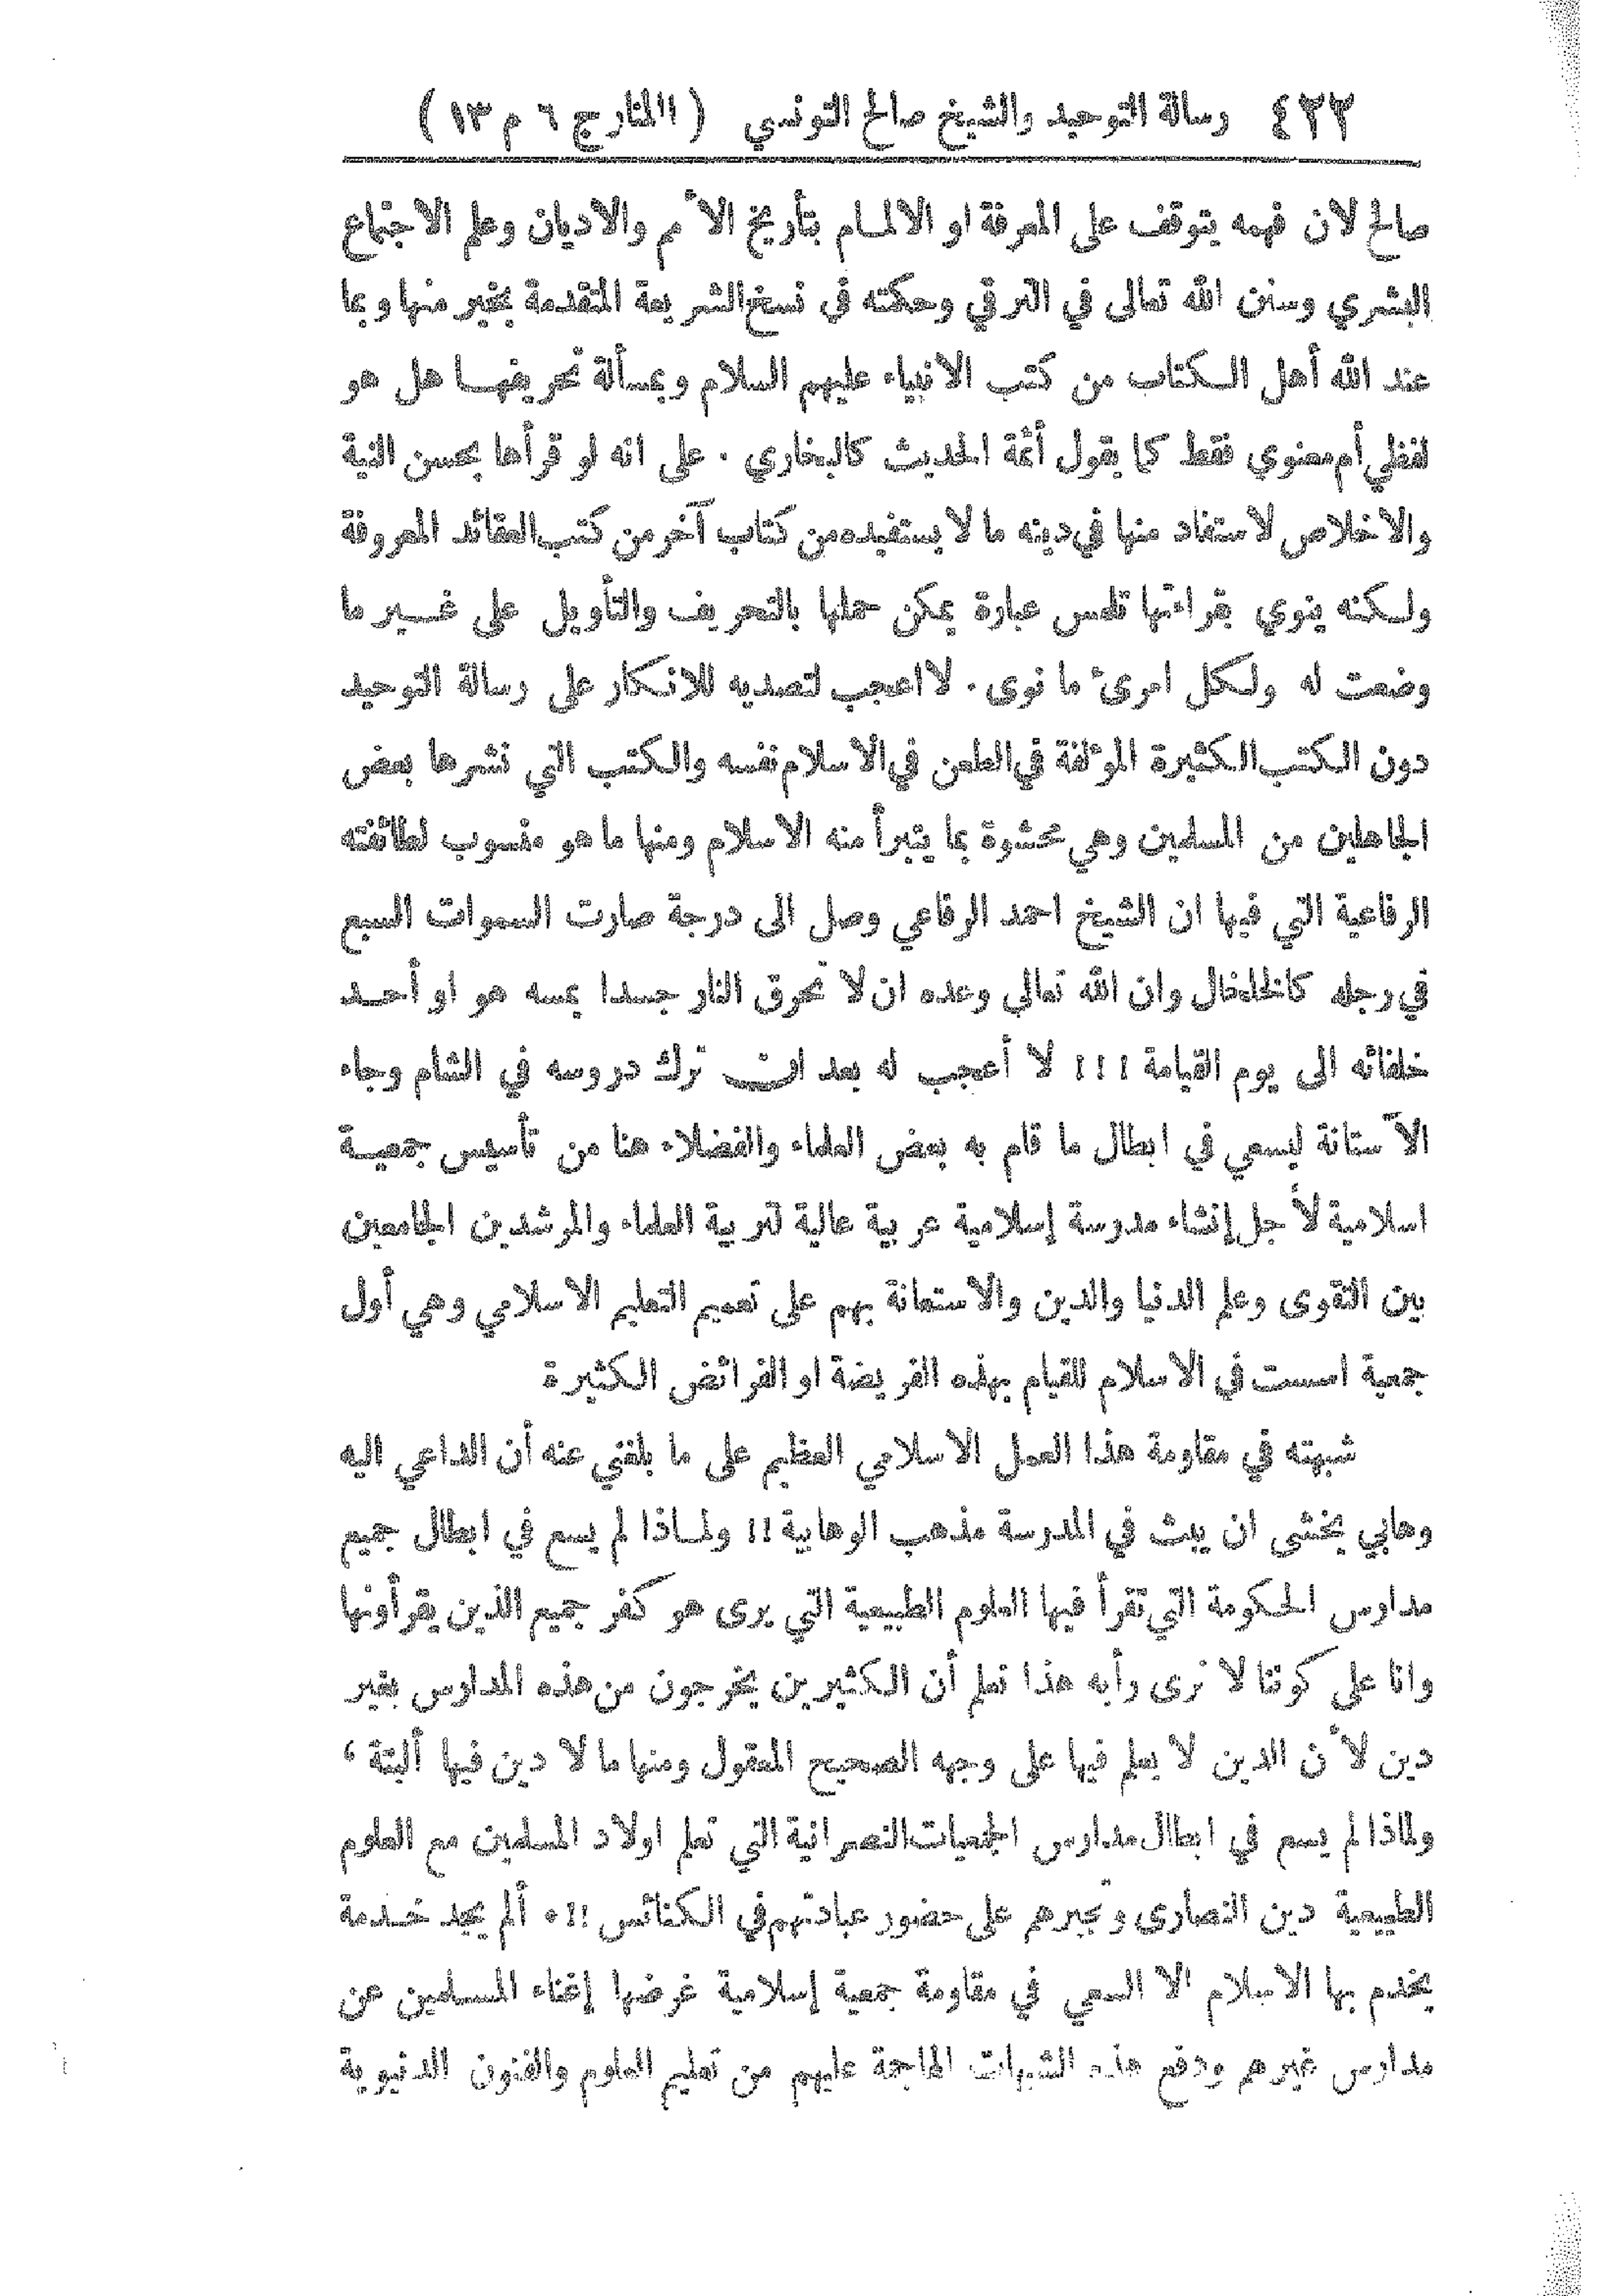 ٤٢٢ رسالة التوحيد والشيخ صالح التونسي ( المنار ج ٦ م ١٣ )
صالح لان فهمه يتوقف على المعرفة او الالمـام بتأريخ الأمم والاديان وعلم الاجتماع
البشري وسنن الله تعالى في الترقي وحكمته في نسخ الشريعة المتقدمة بخير منها وبما
عند الله أهل الـكتاب من كتب الانبياء عليهم السلام وبمسألة تحريفهـا هل هو
لفظي أم معنوي فقط كما يقول أئمة الحديث كالبخاري . على انه لو قرأها بحسن النية
والاخلاص لاستفاد منها في دينه ما لا يستفيده من كتاب آخر من كتب العقائد المعروفة
ولـكنه ينوي بقراءتها تلمس عبارة يمكن حملها بالتحريف والتأويل على غـير ما
وضعت له ولـكل امرئ ما نوى . لا اعجب لتصديه للانـكار على رسالة التوحيد
دون الـكتب الـكثيرة المؤلفة في الطعن في الاسلام نفسه والـكتب التي نشرها بعض
الجاهلين من المسلمين وهي محشوة بما يتبرأ منه الاسلام ومنها ما هو منسوب لطائفته
الرفاعية التي فيها ان الشيخ احمد الرفاعي وصل الى درجة صارت السموات السبع
في رجله كالخلخال وان الله تعالى وعده ان لا تحرق النار جسدا يمسه هو او أحـد
خلفائه الى يوم القيامة !!! لا أعجب له بعد ان ترك دروسه في الشام وجاء
الآستانة ليسعى في ابطال ما قام به بعض العلماء والفضلاء هنا من تأسيس جمعيـة
اسلامية لأجل إنشاء مدرسة إسلامية عربية عالية لتربية العلماء والمرشدين الجامعين
بين التقوى وعلم الدنيا والدين والاستعانة بهم على تعميم التعليم الاسلامي وهي أول
جمعية اسست في الاسلام للقيام بهذه الفريضة او الفرائض الـكثيرة
شبهته في مقاومة هذا العمل الاسلامي العظيم على ما بلغني عنه أن الداعي اليه
وهابي يخشى ان يبث في المدرسة مذهب الوهابية !! ولمـاذا لم يسع في ابطال جميع
مدارس الحـكومة التي تقرأ فيها العلوم الطبيعية التي يرى هو كفر جميع الذين يقرأونها
وانا على كوننا لا نرى رأيه هذا نعلم أن الـكثيرين يخرجون من هذه المدارس بغير
دين لأن الدين لا يعلم فيها على وجهه الصحيح المعقول ومنها ما لا دين فيها ألبتة ،
ولماذا لم يسع في ابطال مدارس الجمعيات النصرانية التي تعلم اولاد المسلمين مع العلوم
الطبيعية دين النصارى وتجبرهم على حضور عباداتهم في الـكنائس !!. ألم يجد خـدمة
يخدم بها الاسلام الا السعي في مقاومة جمعية إسلامية غرضها إغناء المسـلمين عن
مدارس غيرهم ودفع هذه الشبهات الهاجمة عليهم من تعليم العلوم والفنون الدنيوية